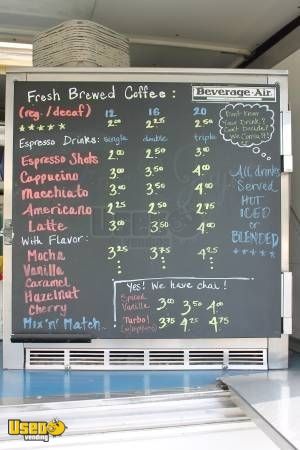 Fresh Brewed Coffee:
Beverage-Air
(reg./decaf) 12 16 20
2.00 2.25 2.50
Espresso Drinks: single double triple
Espresso Shots 2.00 2.50 3.00
Cappucino 3.00 3.50 4.00
Macchiato 3.00 3.50 4.00
Americano 2.25 2.50 2.75
Latte 3.00 3.50 4.00
With Flavor:
Mocha 3.25 3.75 4.25
Vanilla
Caramel
Hazelnut
Cherry
Mix 'n' Match
Don't Know
Your Drink?
Can't Decide?
All drinks
Served
HOT
ICED
or
BLENDED
Yes! We have chai!
Spiced
Vanilla 3.00 3.50 4.00
Turbo! 3.75 4.25 4.75
(w/espresso)
Used
vending